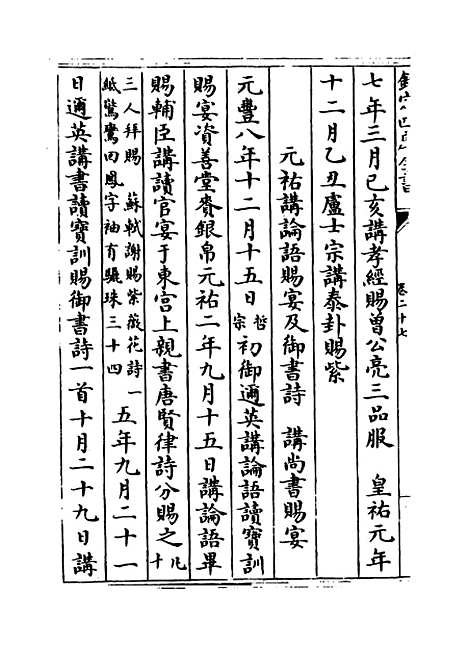 欽定四庫全書
卷二十七
七年三月己亥講孝經賜曾公亮三品服　皇祐元年
十二月乙丑盧士宗講泰卦賜紫
元祐講論語賜宴及御書詩　講尚書賜宴
元豐八年十二月十五日哲宗初御邇英講論語讀寶訓
賜宴資善堂賚銀帛元祐二年九月十五日講論語畢
賜輔臣講讀官宴于東宮上親書唐賢律詩分賜之凡十
三人拜賜　蘇軾謝賜紫薇花詩一
紙驚鸞回鳳字袖有驪珠三十四　五年九月二十一
日邇英講書讀寶訓賜御書詩一首十月二十九日講